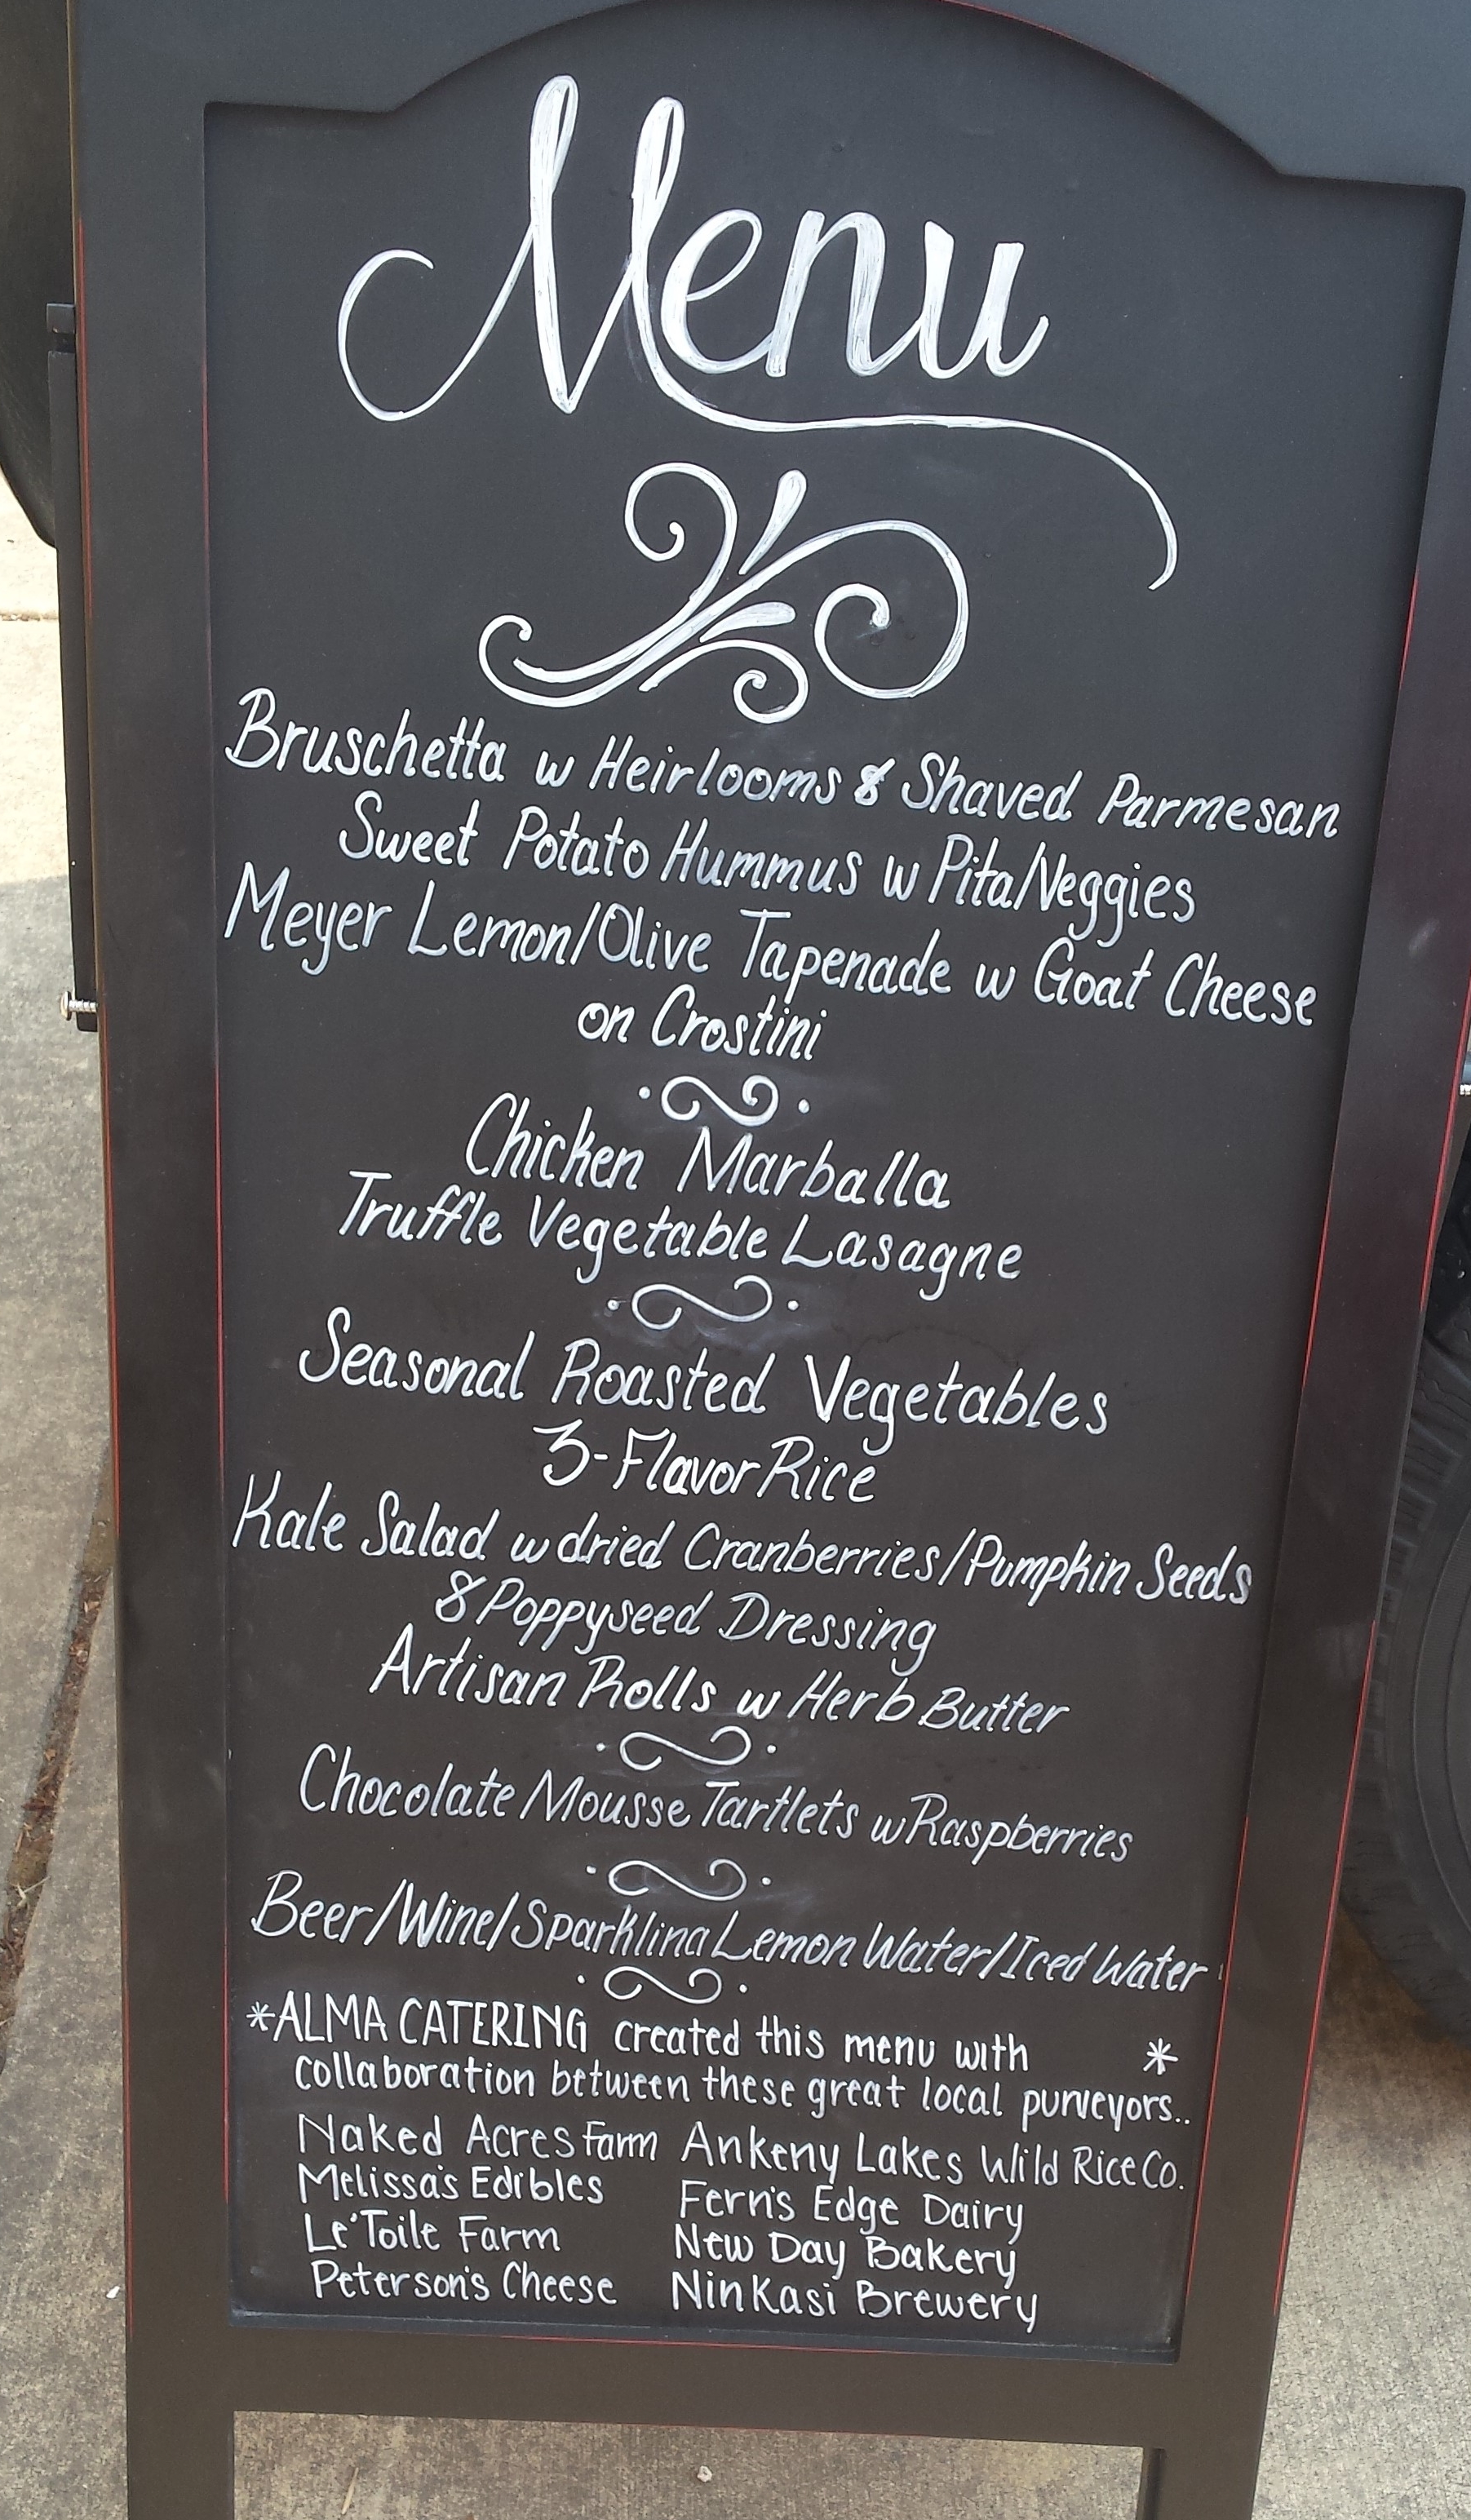 Menu
Bruschetta w Heirlooms & Shaved Parmesan
Sweet Potato Hummus w Pita/Veggies
Meyer Lemon/Olive Tapenade w Goat Cheese
on Crostini
Chicken Marballa
Truffle Vegetable Lasagne
Seasonal Roasted Vegetables
3-Flavor Rice
Kale Salad w dried Cranberries/Pumpkin Seeds
& Poppyseed Dressing
Artisan Rolls w Herb Butter
Chocolate Mousse Tartlets w Raspberries
Beer/Wine/Sparkling Lemon Water/Iced Water
*ALMA CATERING created this menu with *
collaboration between these great local purveyors..
Naked Acres Farm Ankeny Lakes Wild Rice Co.
Melissa's Edibles Fern's Edge Dairy
Le'Toile Farm New Day Bakery
Peterson's Cheese NinKasi Brewery